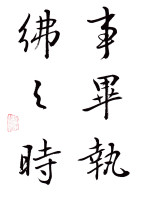 事畢執
紼之時